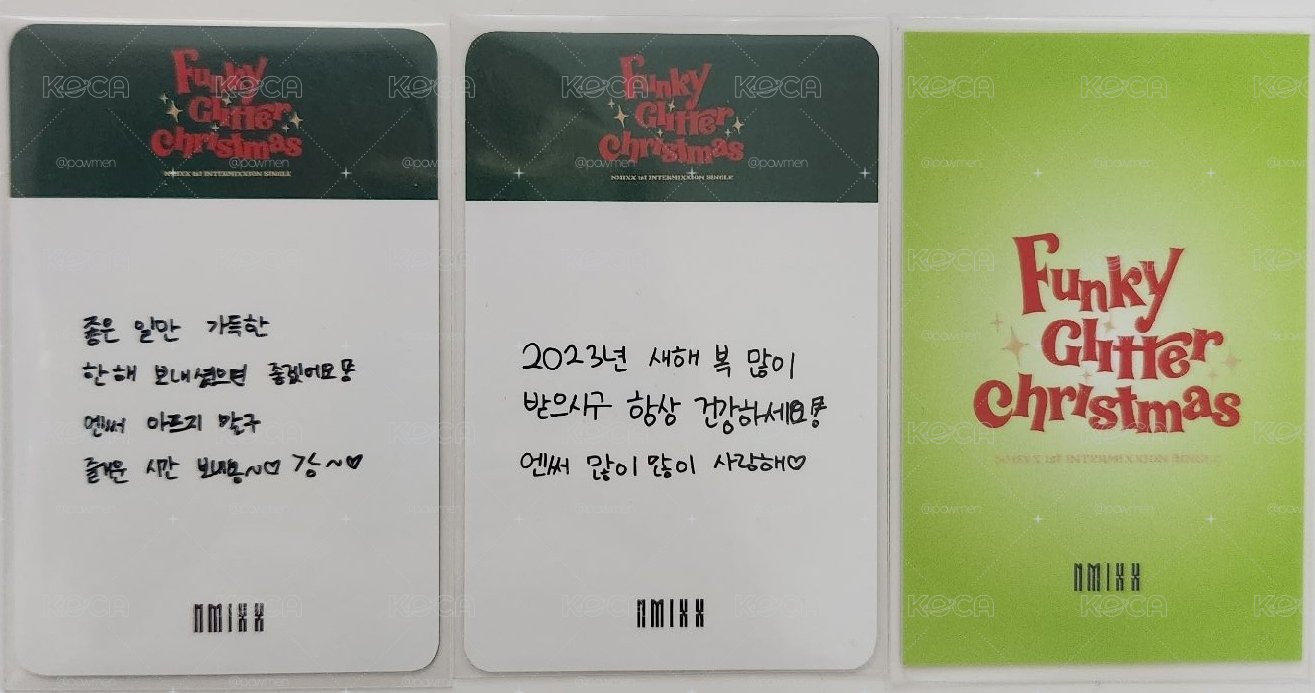 Funky
Glitter
Christmas
NMIXX 1st INTERMIXXION SINGLE
좋은 일만 가득한
한해 보내셨으면 좋겠어요
엔써 아프지 말구
즐거운 시간 보내용~♡ 강~♡
NMIXX
Funky
Glitter
Christmas
NMIXX 1st INTERMIXXION SINGLE
2023년 새해 복 많이
받으시구 항상 건강하세요
엔써 많이 많이 사랑해♡
NMIXX
Funky
Glitter
Christmas
NMIXX 1st INTERMIXXION SINGLE
NMIXX
KOCA
@pawmen